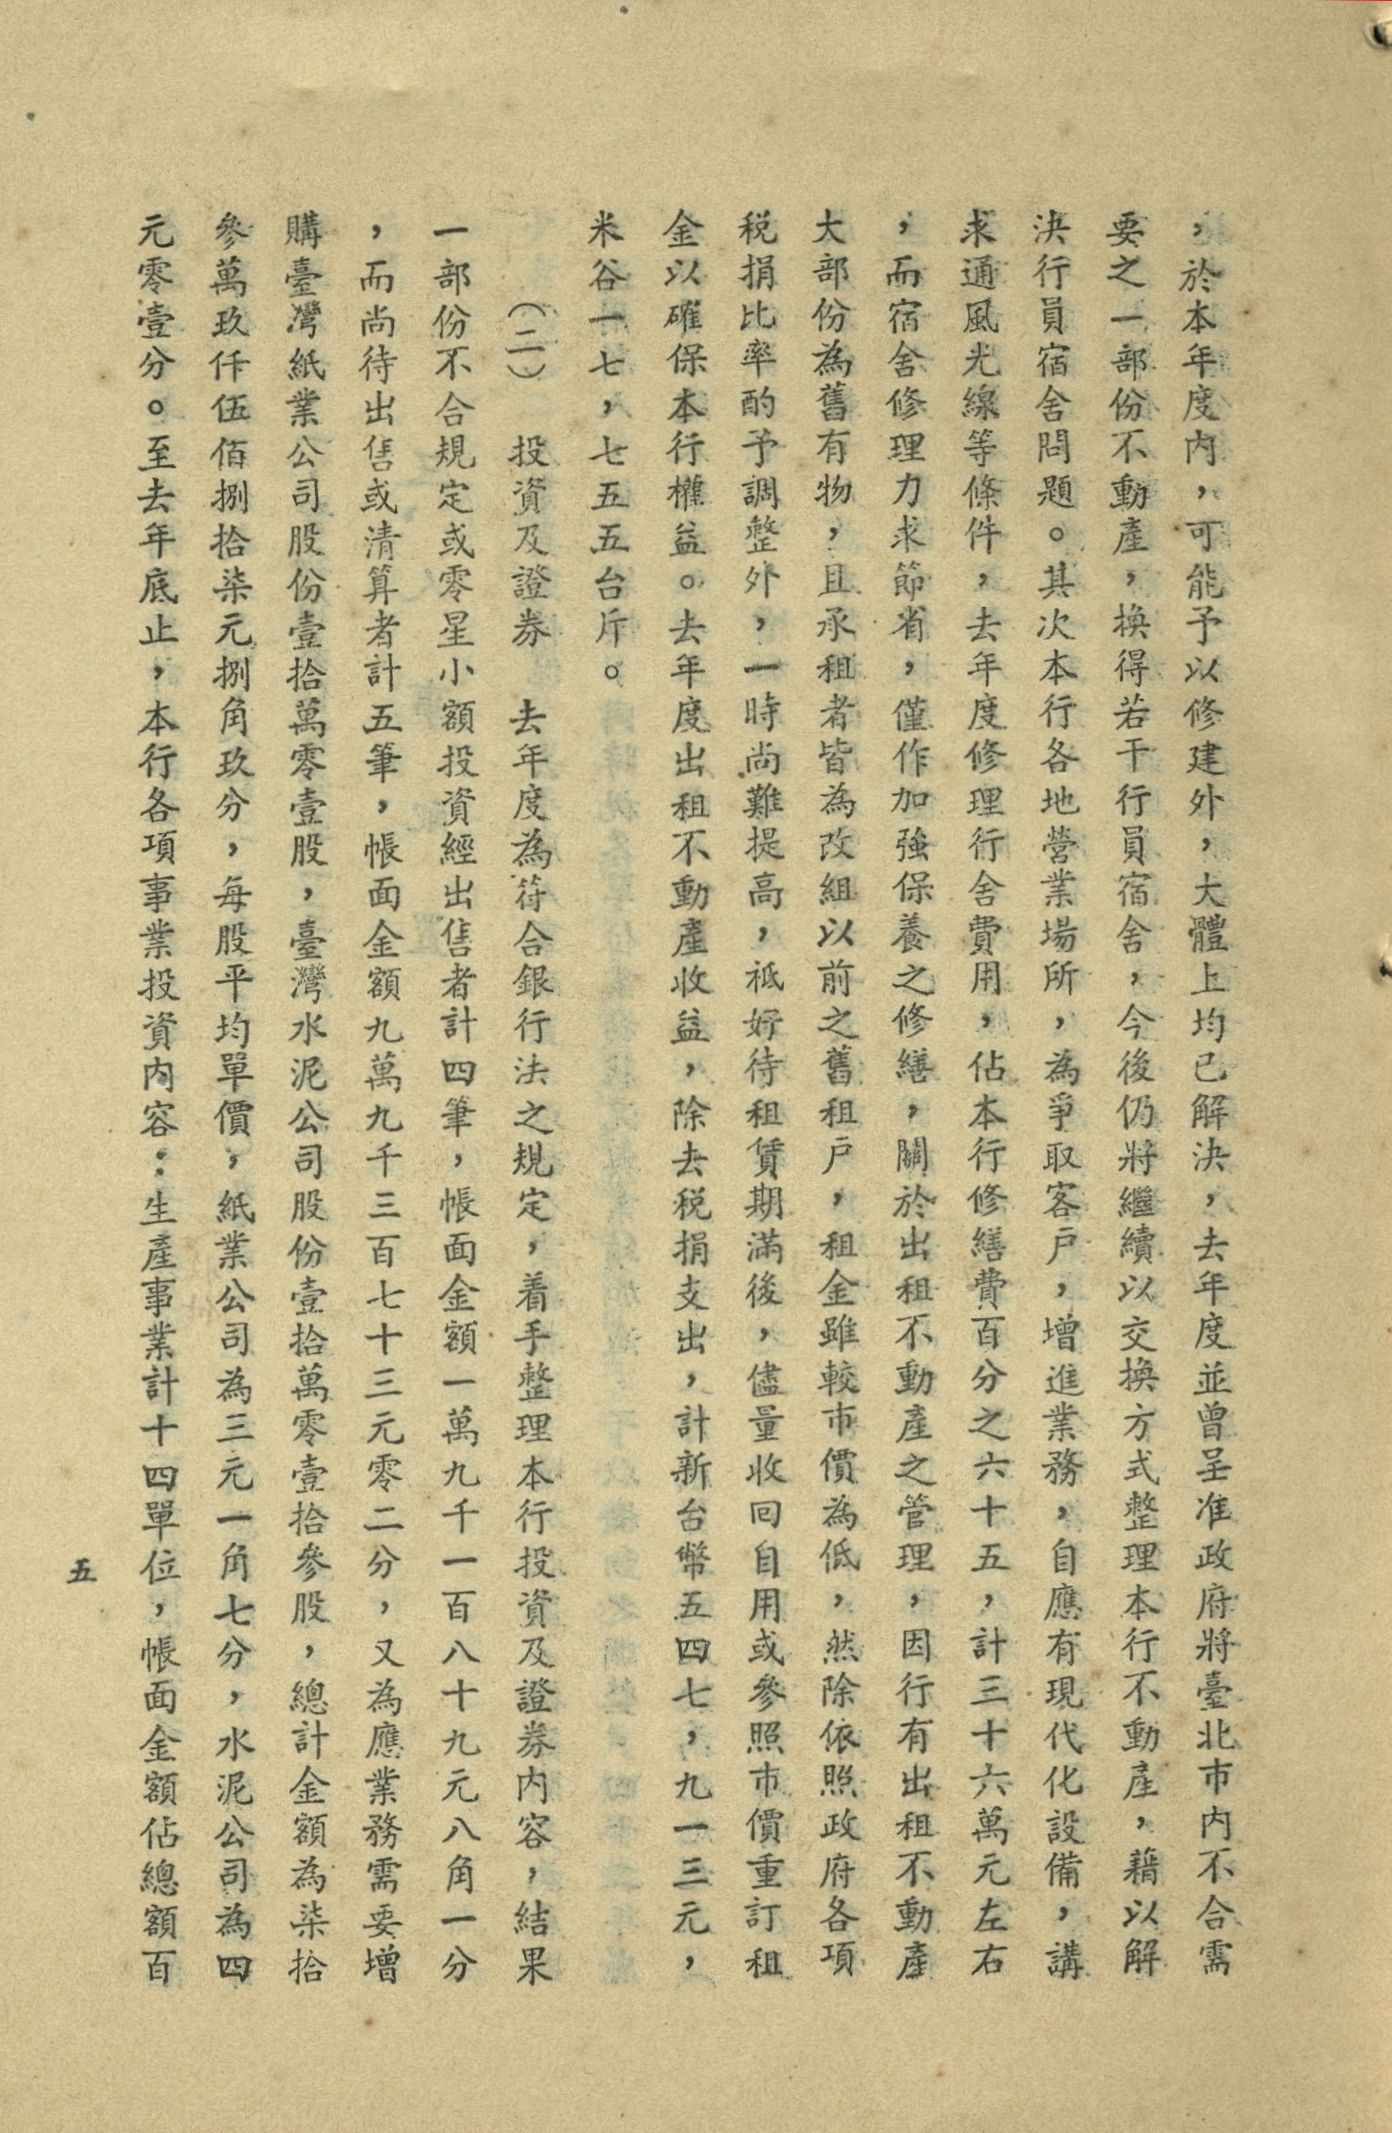 ，於本年度內，可能予以修建外，大體上均已解決，去年度並曾呈准政府將臺北市內不合需
要之一部份不動產，換得若干行員宿舍，今後仍將繼續以交換方式整理本行不動產，藉以解
決行員宿舍問題。其次本行各地營業場所，為爭取客戶，增進業務，自應有現代化設備，講
求通風光線等條件，去年度修理行舍費用，佔本行修繕費百分之六十五，計三十六萬元左右
，而宿舍修理力求節省，僅作加強保養之修繕，關於出租不動產之管理，因行有出租不動產
大部份為舊有物，且承租者皆為改組以前之舊租戶，租金雖較市價為低，然除依照政府各項
稅捐比率酌予調整外，一時尚難提高，祗好待租賃期滿後，儘量收回自用或參照市價重訂租
金以確保本行權益。去年度出租不動產收益，除去稅捐支出，計新台幣五四七，九一三元，
米谷一七，七五五台斤。
（二）　投資及證券　去年度為符合銀行法之規定，着手整理本行投資及證券內容，結果
一部份不合規定或零星小額投資經出售者計四筆，帳面金額一萬九千一百八十九元八角一分
，而尚待出售或清算者計五筆，帳面金額九萬九千三百七十三元零二分，又為應業務需要增
購臺灣紙業公司股份壹拾萬零壹股，臺灣水泥公司股份壹拾萬零壹拾參股，總計金額為柒拾
參萬玖仟伍佰捌拾柒元捌角玖分，每股平均單價，紙業公司為三元一角七分，水泥公司為四
元零壹分。至去年底止，本行各項事業投資內容：生產事業計十四單位，帳面金額佔總額百
五